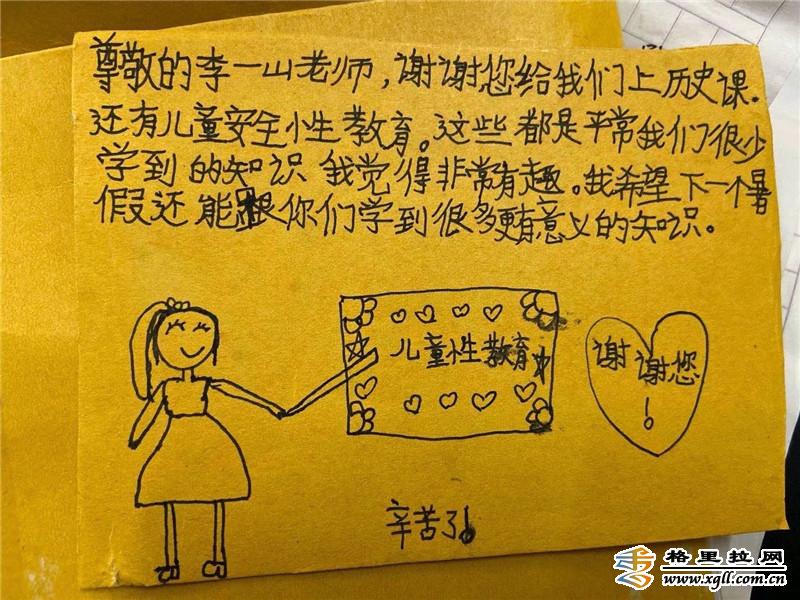 尊敬的李一山老师，谢谢您给我们上历史课.
还有儿童安全性教育。这些都是平常我们很少
学到的知识 我觉得非常有趣。我希望下一个暑
假还能跟你们学到很多更有意义的知识。
儿童性教育
谢谢您！
辛苦了！
格里拉网
www.xgll.com.cn